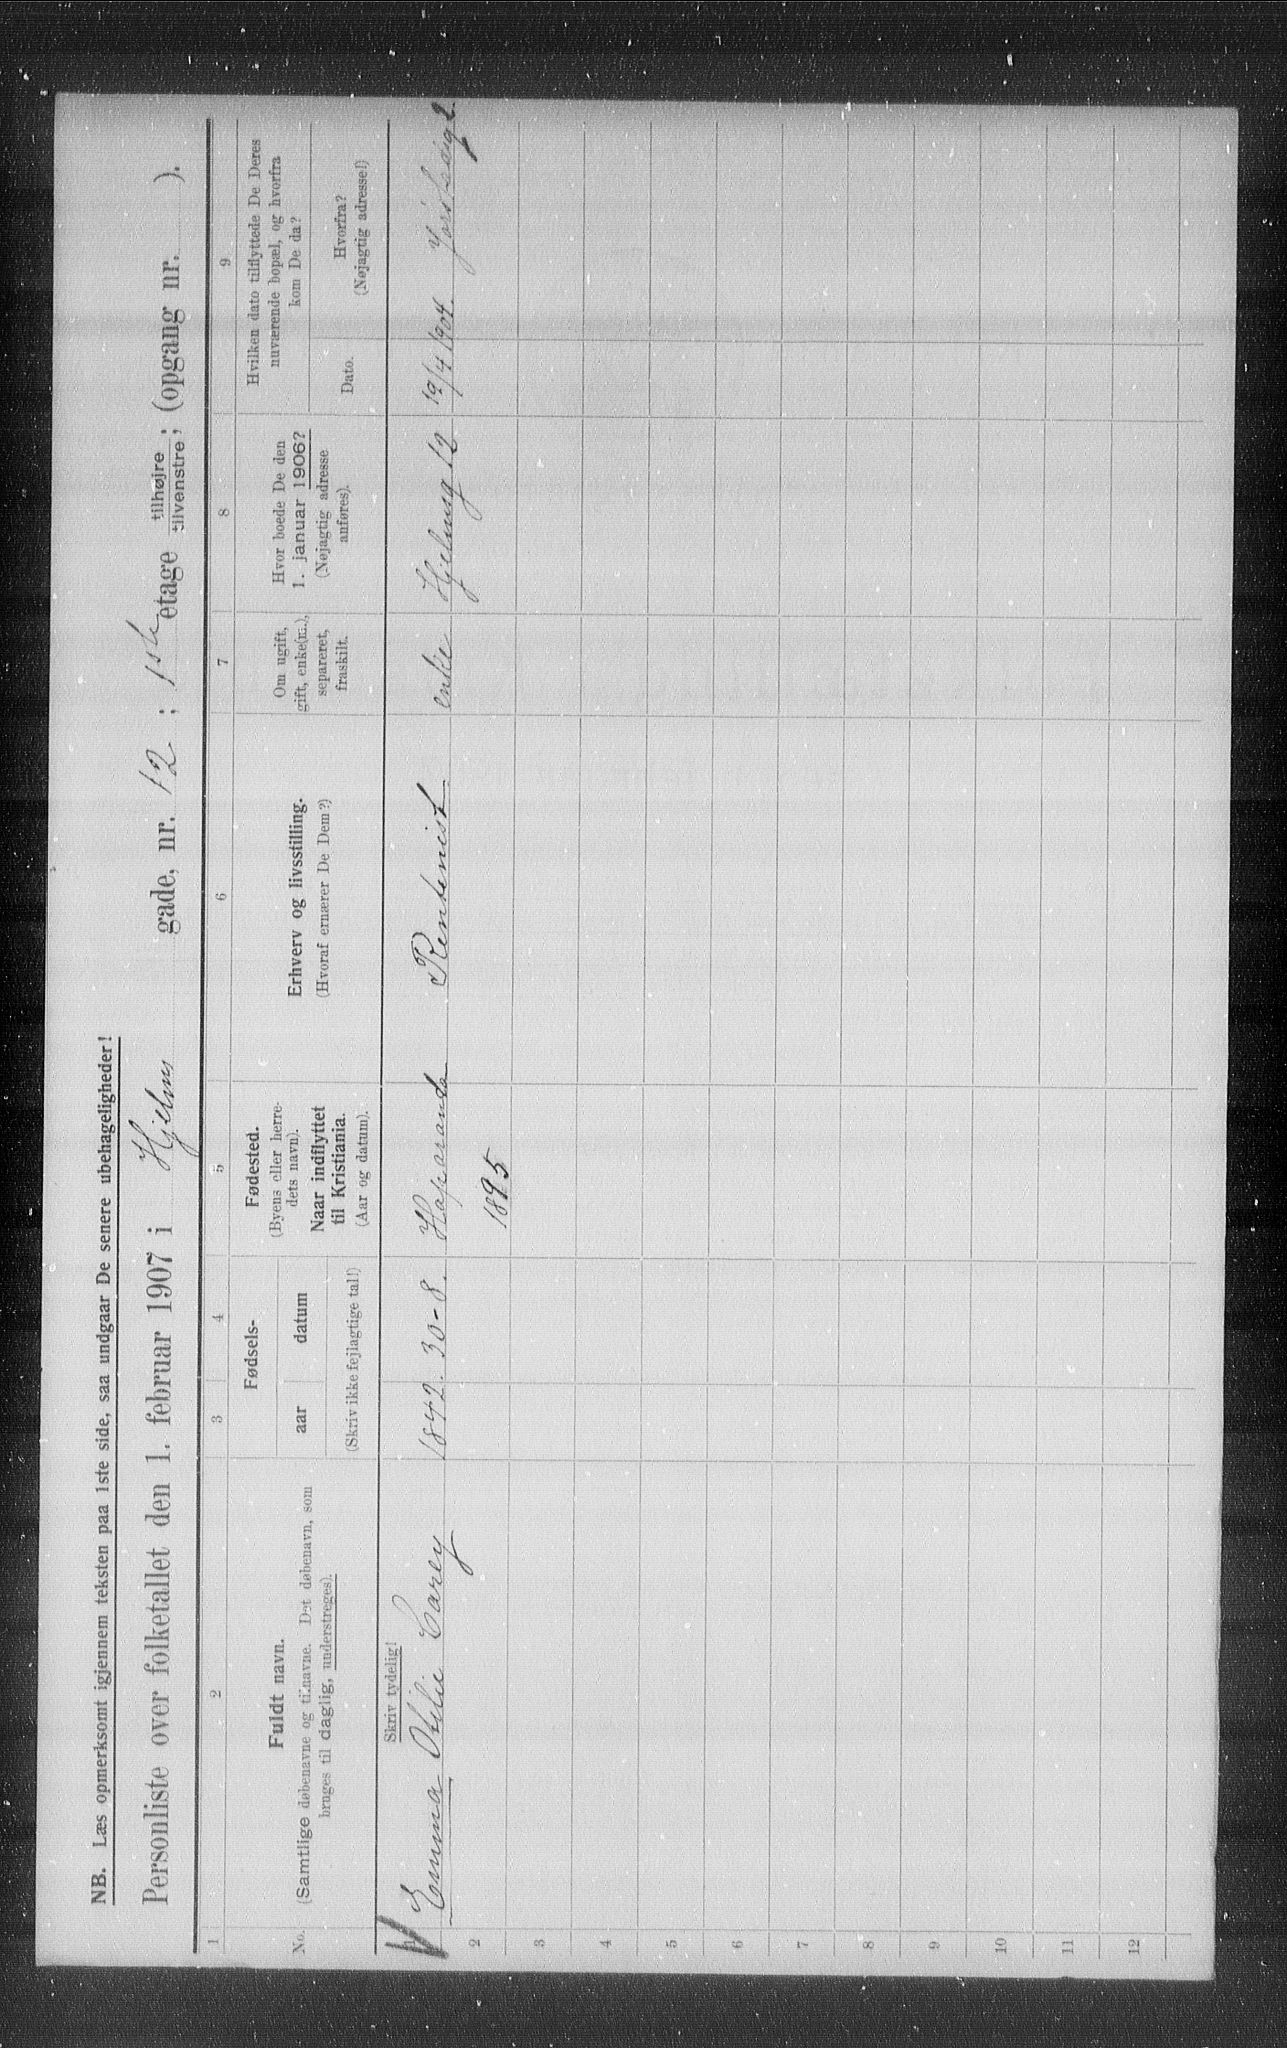 NB. Læs opmerksomt igjennem teksten paa 1ste side, saa undgaar De senere ubehageligheder!
Personliste over folketallet den 1. februar 1907 i Hjelms gade, nr. 12; 1ste etage tilhøjre; tilvenstre; (opgang nr. ).
1 2 3 4 5 6 7 8 9
No.
Fuldt navn.
(Samtlige døbenavne og tilnavne. Det døbenavn, som
bruges til daglig, understreges).
Fødsels-
aar datum
(Skriv ikke fejlagtige tal!)
Fødested.
(Byens eller herre-
dets navn).
Naar indflyttet
til Kristiania.
(Aar og datum).
Erhverv og livsstilling.
(Hvoraf ernærer De Dem?)
Om ugift,
gift, enke(m.),
separeret,
fraskilt.
Hvor boede De den
1. januar 1906?
(Nøjagtig adresse
anføres).
Hvilken dato tilflyttede De Deres
nuværende bopæl, og hvorfra
kom De da?
Dato.
Hvorfra?
(Nøjagtig adresse!)
Skriv tydelig!
1 Emma Otilie Carey 1842. 30-8. Haparanda Rentenist enke Hjelmsg 12 19/4 1904.
2 1895
3
4
5
6
7
8
9
10
11
12